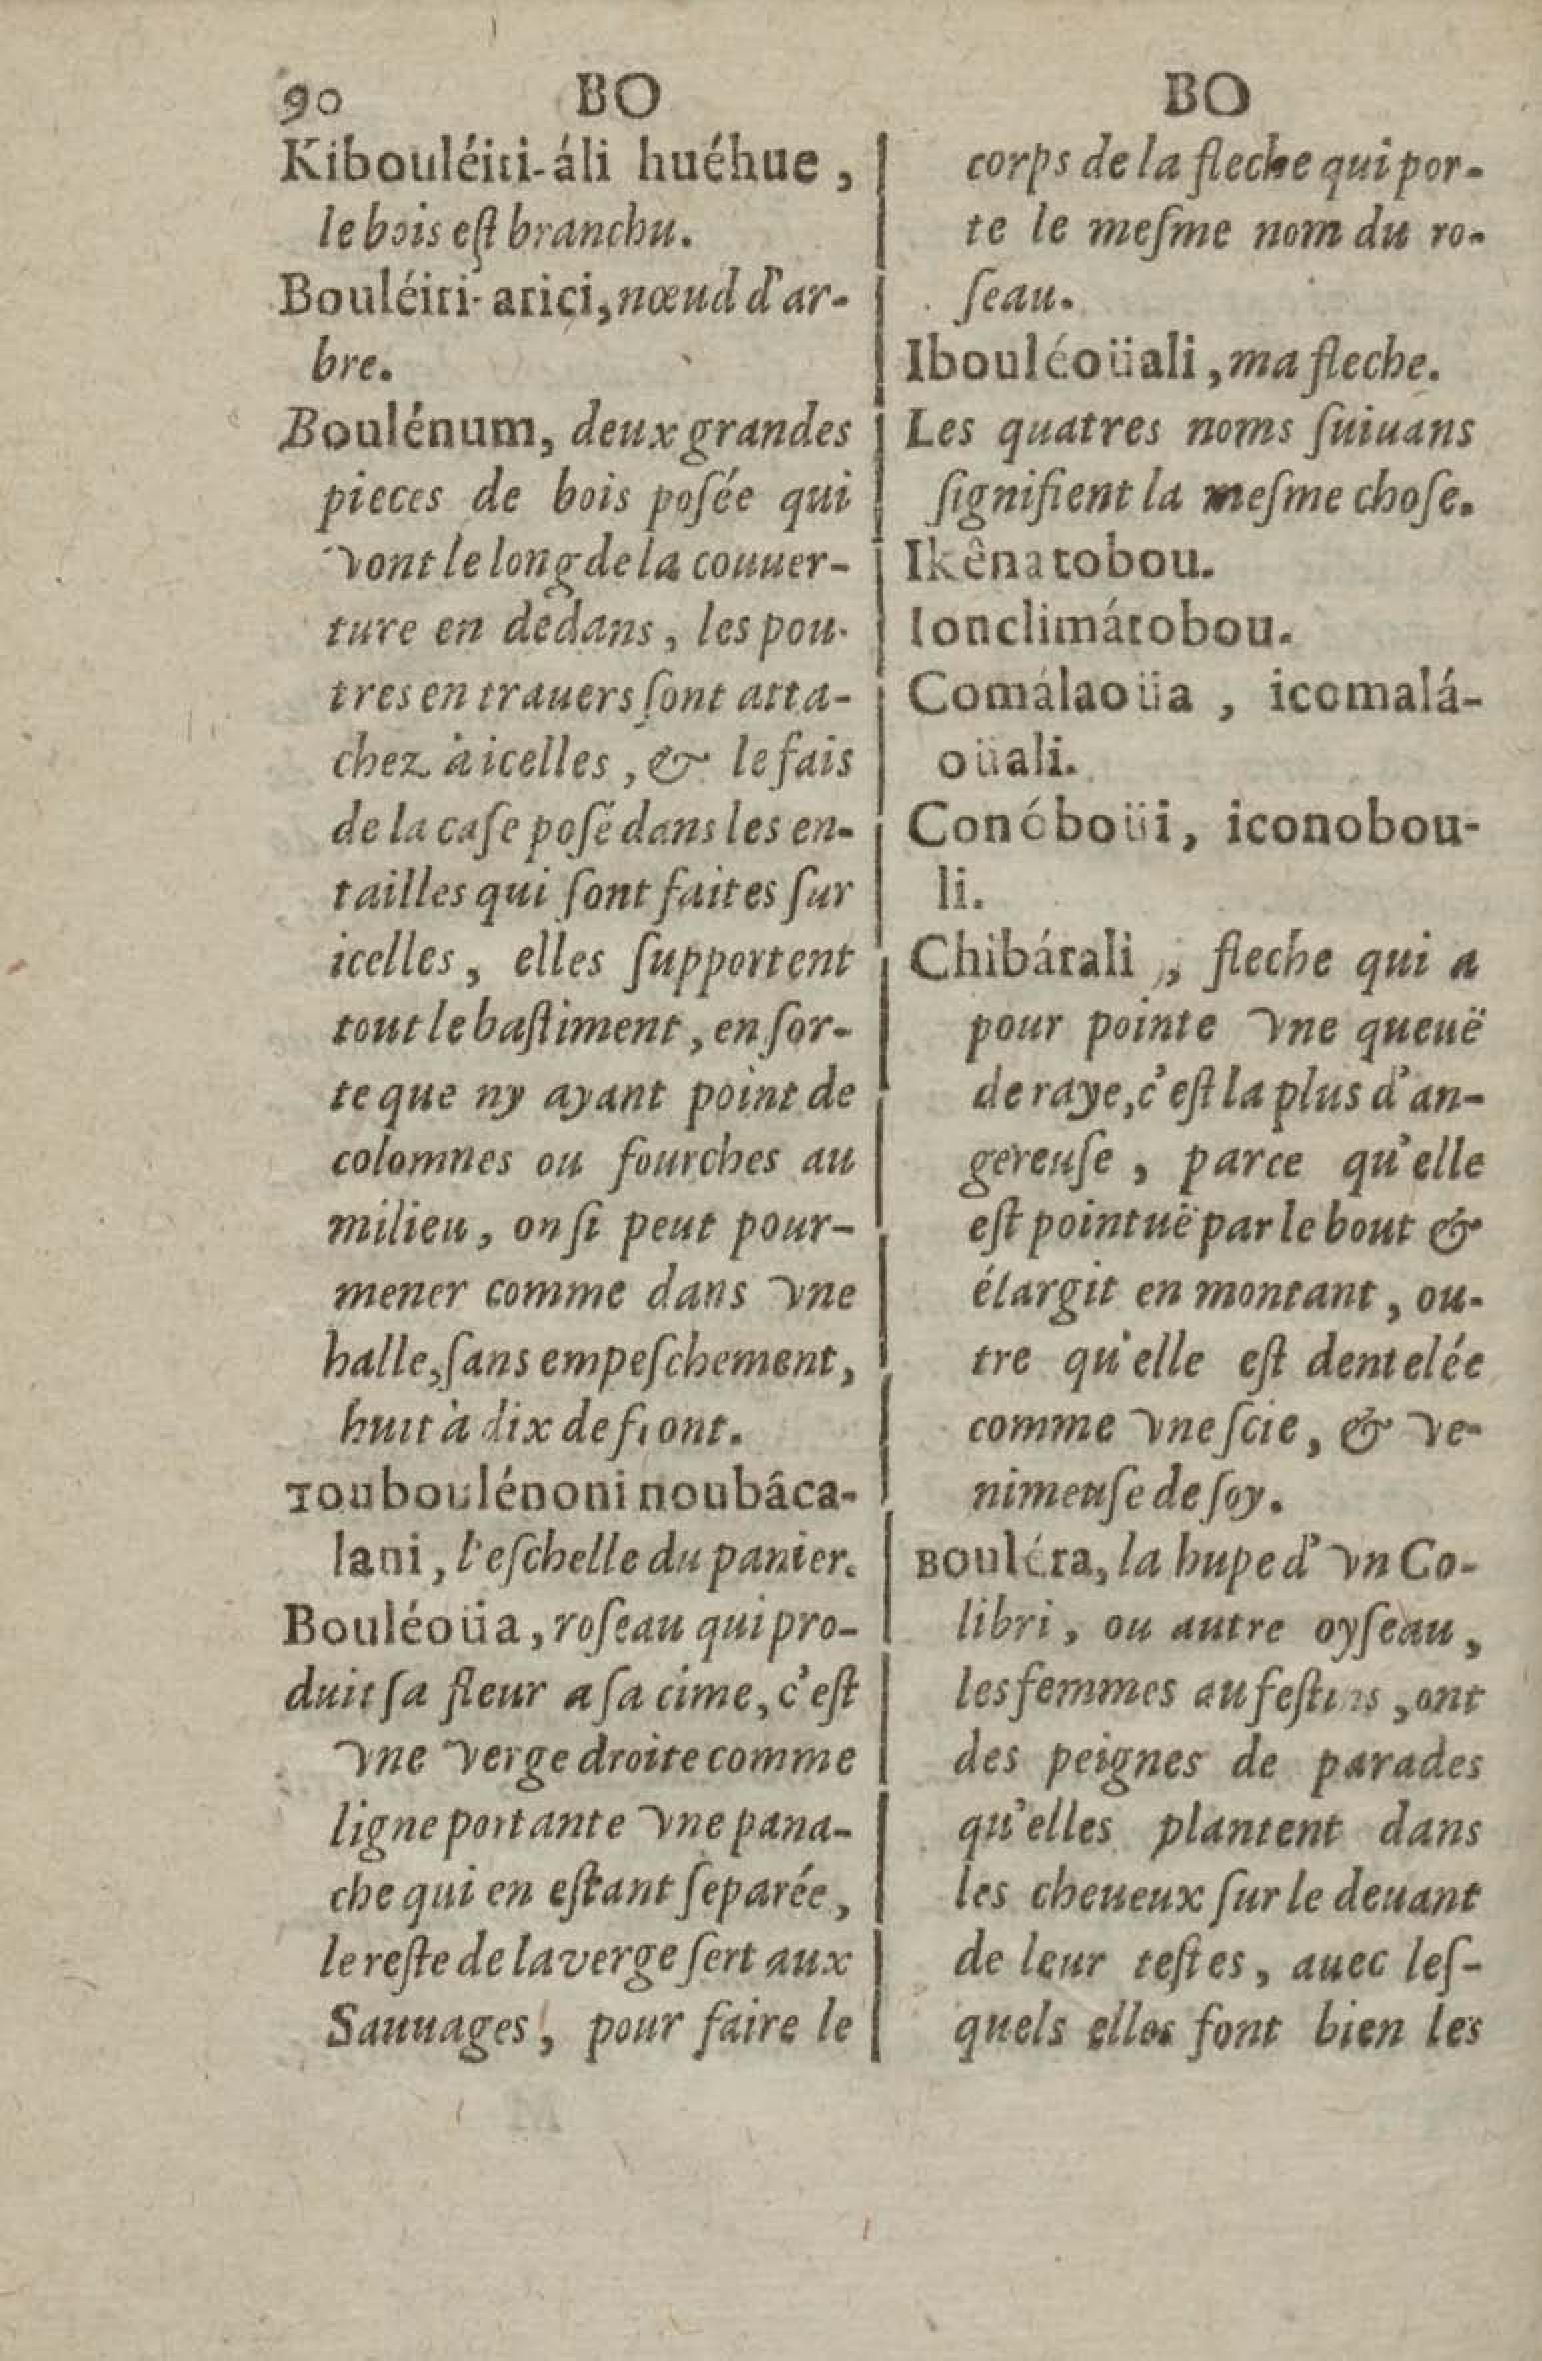 90 BO BO
Kibouléiti-áli huéhue,
le bois eſt branchu.
Bouléiti-arici, nœud d'ar-
bre.
Boulénum, deux grandes
pieces de bois poſée qui
vont le long de la couuer-
ture en dedans, les pou-
tres en trauers ſont atta-
chez à icelles, & le fais
de la caſe poſé dans les en-
tailles qui ſont faites ſur
icelles, elles ſupportent
tout le baſtiment, en ſor-
te que ny ayant point de
colomnes ou fourches au
milieu, on ſi peut pour-
mener comme dans vne
halle, ſans empeſchement,
huit à dix de front.
Touboulénoni noubâca-
lani, l'eſchelle du panier.
Bouléoüa, roſeau qui pro-
duit ſa fleur a ſa cime, c'eſt
vne verge droite comme
ligne portante vne pana-
che qui en eſtant ſeparée,
le reſte de la verge ſert aux
Sauuages, pour faire le
corps de la fleche qui por-
te le meſme nom du ro-
ſeau.
Ibouléoüali, ma fleche.
Les quatres noms ſuiuans
ſignifient la meſme choſe.
Ikênatobou.
Ionclimátobou.
Comálaoüa, icomalá-
oüali.
Conóboüi, iconobou-
li.
Chibárali, fleche qui a
pour pointe vne queuë
de raye, c'eſt la plus d'an-
gereuſe, parce qu'elle
eſt pointuë par le bout &
élargit en montant, ou-
tre qu'elle eſt dentelée
comme vne ſcie, & ve-
nimeuſe de ſoy.
Bouléra, la hupe d'vn Co-
libri, ou autre oyſeau,
les femmes au feſtins, ont
des peignes de parades
qu'elles plantent dans
les cheueux ſur le deuant
de leur teſtes, auec leſ-
quels elles font bien les